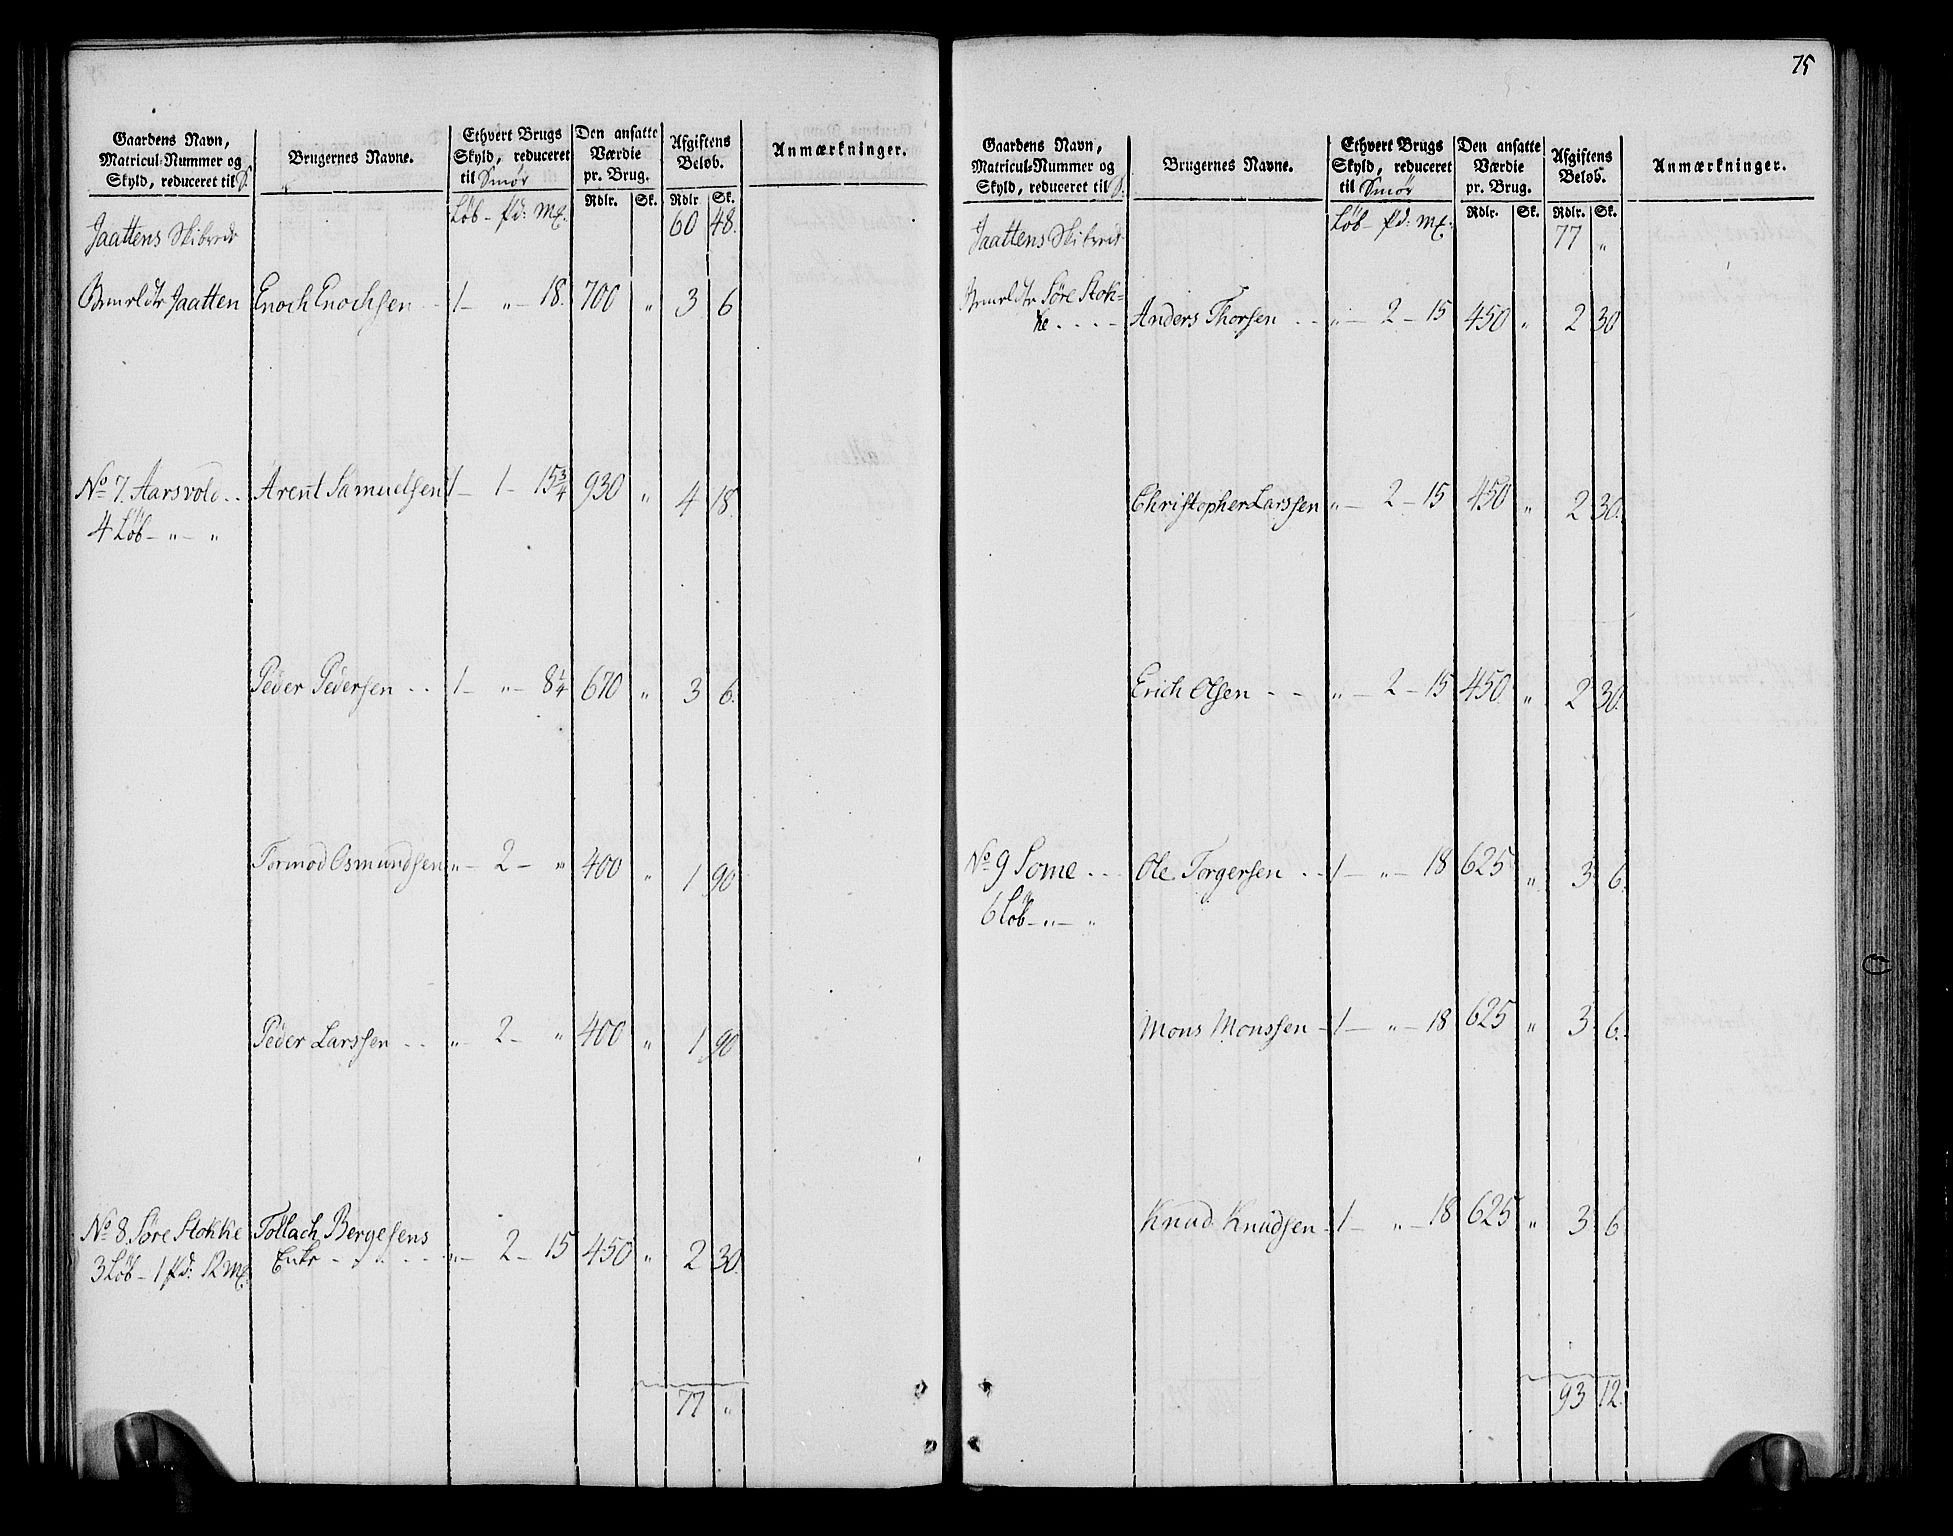 75
Gaardens Navn, Matricul-Nummer og Skyld, reduceret til S.
Brugernes Navne.
Ethvert Brugs Skyld, reduceret til Smør
Den ansatte Værdie pr. Brug.
Afgiftens Beløb.
Anmærkninger.
Rdlr. Sk. Rdlr. Sk.
Løb - Pd: Mk.
Jaattens Skibrede 60 48.
Jaatten Enoch Enochsen - - 1 - „ - 18. 700 „ 3 6
No 7. Aarsvold - - Arent Samuelsen 1 - 1 - 15¾ 930 „ 4 18.
4 Løb - „ - „
Peder Pedersen - - 1 - „ - 8¼ 670 „ 3 6.
Tormod Osmundsen „ - 2 - „ 400 „ 1 90
Peder Larssen - - „ - 2 - „ 400 „ 1 90
No 8. Søre Stokke Tollach Bergesens
3 Løb - 1 Pd: 12 Mk. Enke - - - „ - 2 - 15 450 „ 2 30.
77 „
Gaardens Navn, Matricul-Nummer og Skyld, reduceret til S.
Brugernes Navne.
Ethvert Brugs Skyld, reduceret til Smør
Den ansatte Værdie pr. Brug.
Afgiftens Beløb.
Anmærkninger.
Rdlr. Sk. Rdlr. Sk.
Løb - Pd: Mk.
Jaattens Skibrede 77 „
Søre Stok-
ke - - - - Anders Thorsen - - „ - 2 - 15 450 „ 2 30
Christopher Larssen „ - 2 - 15 450 „ 2 30.
Erich Olsen - - „ - 2 - 15 450 „ 2 30.
No 9 Some - - Ole Torgersen - - 1 - „ - 18 625 „ 3 6.
6 Løb - „ - „
Mons Monssen - 1 - „ - 18 625 „ 3 6.
Knud Knudsen - 1 - „ - 18 625 „ 3 6
93 12.